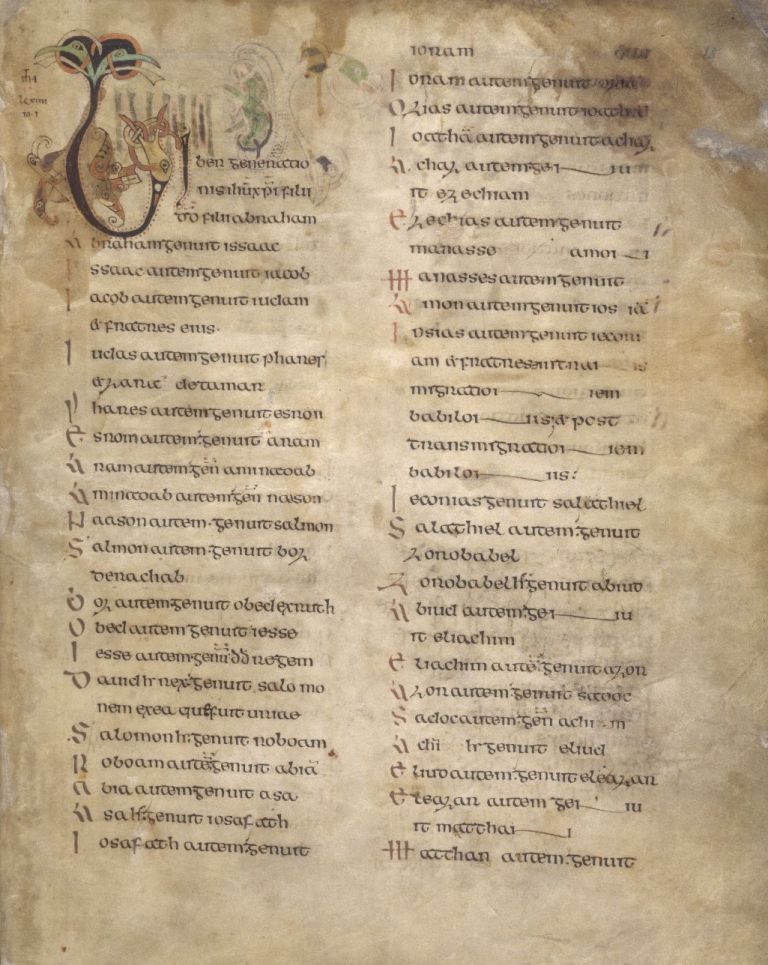 iber generatio
nis ihu xpi filii
dd filii abraham
Abraham genuit issaac
Issaac autem genuit iacob
Iacob autem genuit iudam
& fratres eius.
Iudas autem genuit phares
& zara de tamar
Phares autem genuit esrom
Esrom autem genuit aram
Aram autem gen aminadab
Aminadab autem gen nason
Naason autem genuit salmon
Salmon autem genuit boz
de rachab
Boz autem genuit obed ex ruth
Obed autem genuit iesse
Iesse autem genuit dd regem
Dauid rex genuit salomo
nem ex ea que fuit uriae
Salomon genuit roboam
Roboam aute genuit abia
Abia autem genuit asa
Asa genuit iosafath
Iosafath autem genuit
ioram
Ioram autem genuit
Ozias autem genuit ioatha
Ioatha autem genuit achaz
Achaz autem gen iu
it ezechiam
Ezechias autem genuit
manasse
Manasses autem genuit
Amon autem genuit ios
Iosias autem genuit iechoni
am & fratres
migration iem
babilon iis & post
transmigration iem
babilon iis:
Ieconias genuit salathiel
Salathiel autem genuit
zorobabel
Zorobabel genuit abiud
Abiud autem gen iu
it eliachim
Eliachim aute genuit azor
Azor autem genuit sadoc
Sadoc autem gen achim
Achi genuit eliud
Eliud autem genuit eleazar
Eleazar autem gen iu
it matthan
Matthan autem genuit